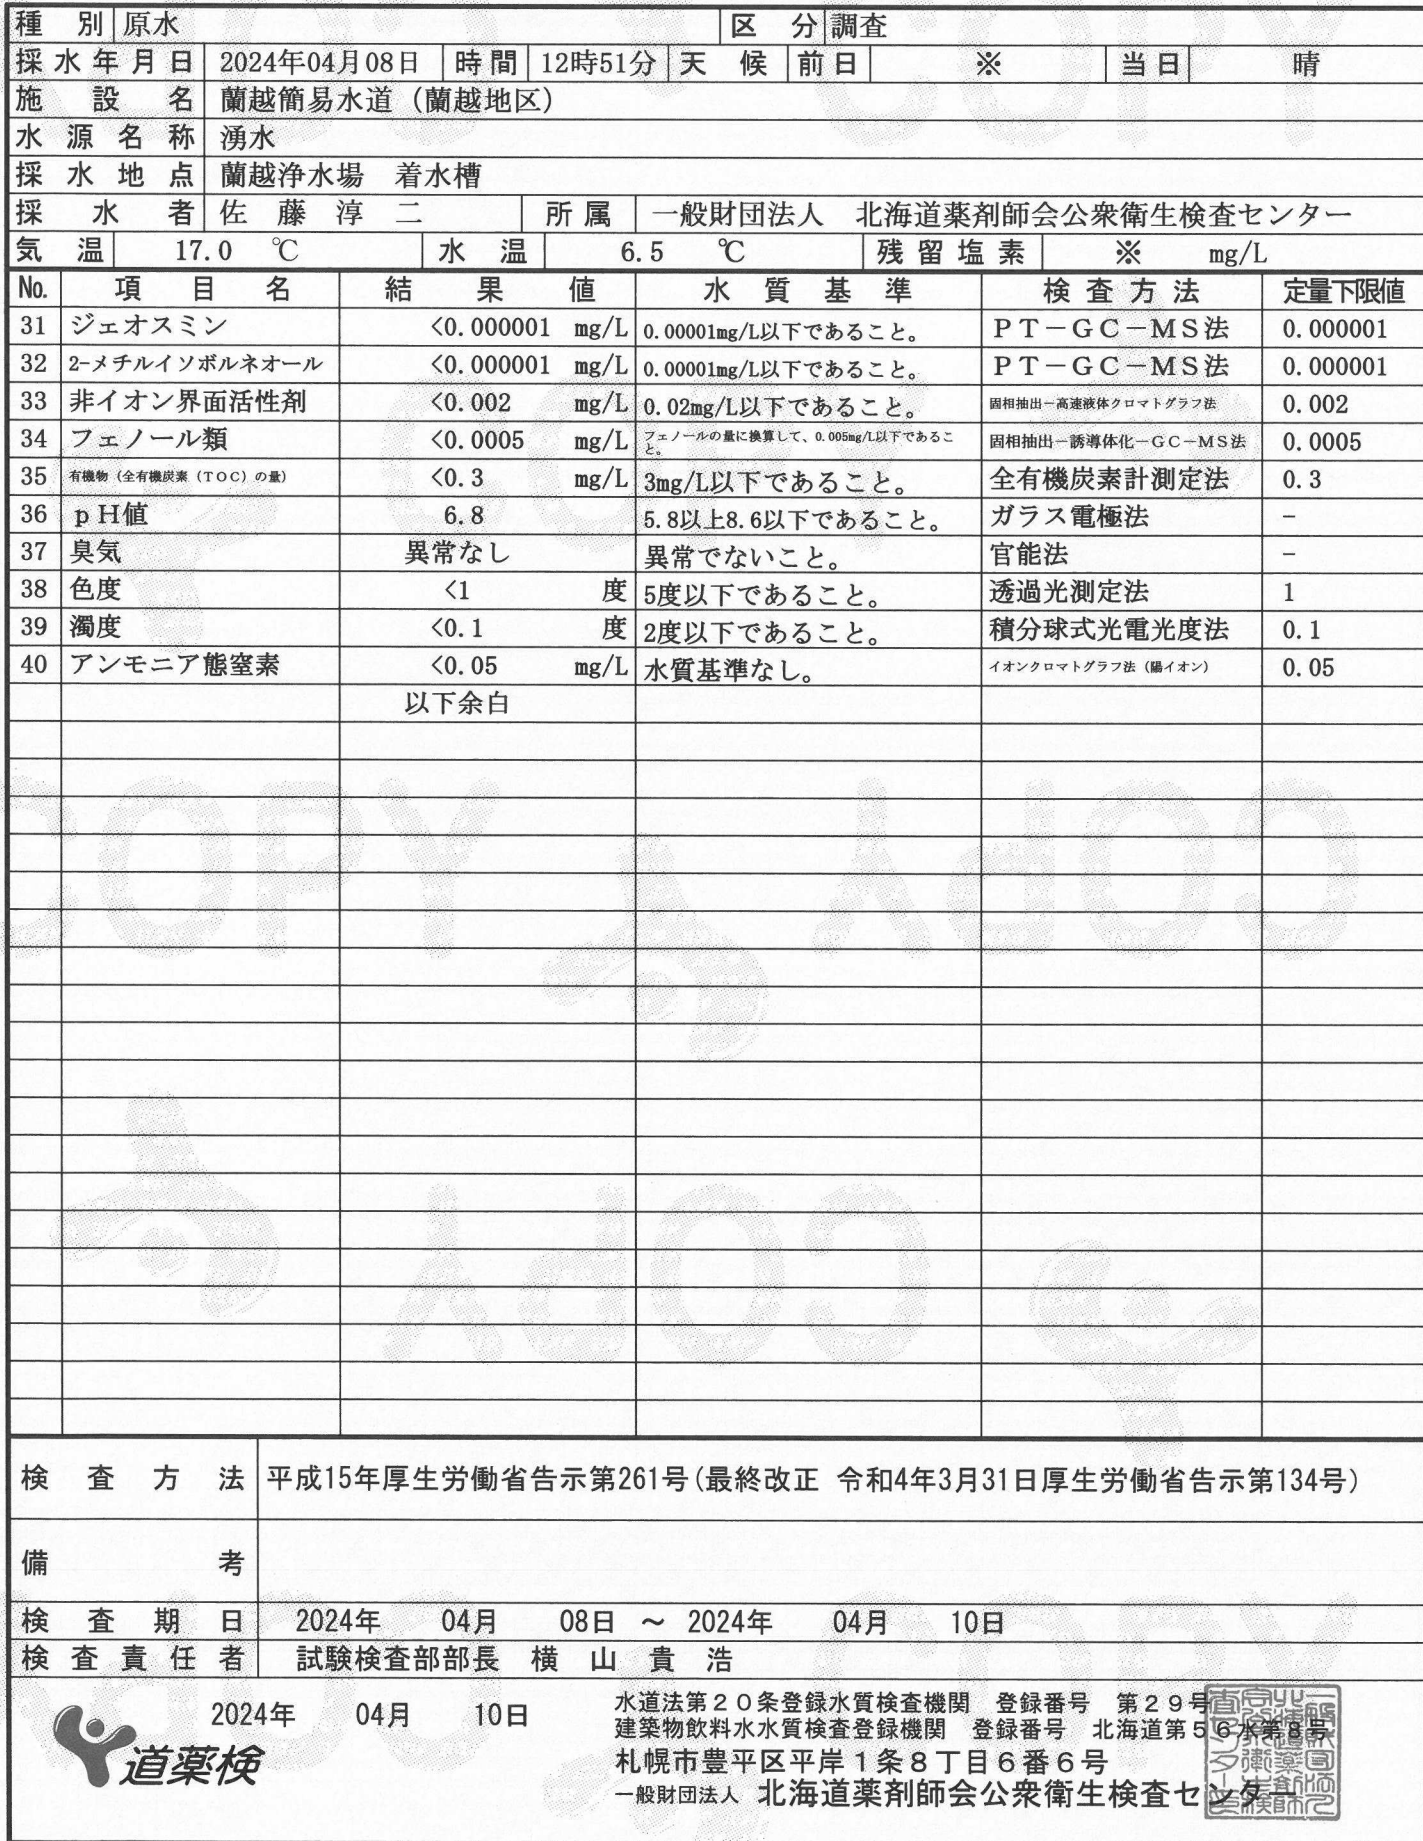 種別 原水 区分 調査
採水年月日 2024年04月08日 時間 12時51分 天候 前日 ※ 当日 晴
施設名 蘭越簡易水道（蘭越地区）
水源名称 湧水
採水地点 蘭越浄水場　着水槽
採水者 佐藤淳二 所属 一般財団法人　北海道薬剤師会公衆衛生検査センター
気温 17.0 ℃ 水温 6.5 ℃ 残留塩素 ※ mg/L
No. 項目名 結果値 水質基準 検査方法 定量下限値
31 ジェオスミン <0.000001 mg/L 0.00001mg/L以下であること。 ＰＴ－ＧＣ－ＭＳ法 0.000001
32 2-メチルイソボルネオール <0.000001 mg/L 0.00001mg/L以下であること。 ＰＴ－ＧＣ－ＭＳ法 0.000001
33 非イオン界面活性剤 <0.002 mg/L 0.02mg/L以下であること。 固相抽出－高速液体クロマトグラフ法 0.002
34 フェノール類 <0.0005 mg/L フェノールの量に換算して、0.005mg/L以下であること。 固相抽出－誘導体化－ＧＣ－ＭＳ法 0.0005
35 有機物（全有機炭素（ＴＯＣ）の量） <0.3 mg/L 3mg/L以下であること。 全有機炭素計測定法 0.3
36 ｐＨ値 6.8 5.8以上8.6以下であること。 ガラス電極法 −
37 臭気 異常なし 異常でないこと。 官能法 −
38 色度 <1 度 5度以下であること。 透過光測定法 1
39 濁度 <0.1 度 2度以下であること。 積分球式光電光度法 0.1
40 アンモニア態窒素 <0.05 mg/L 水質基準なし。 イオンクロマトグラフ法（陽イオン） 0.05
以下余白
検査方法 平成15年厚生労働省告示第261号(最終改正 令和4年3月31日厚生労働省告示第134号)
備考
検査期日 2024年 04月 08日 ～ 2024年 04月 10日
検査責任者 試験検査部部長 横山貴浩
2024年 04月 10日
道薬検
水道法第２０条登録水質検査機関　登録番号　第２９号
建築物飲料水水質検査登録機関　登録番号　北海道第５６水第８号
札幌市豊平区平岸１条８丁目６番６号
一般財団法人 北海道薬剤師会公衆衛生検査センター
COPY
COPY
COPY
COPY
COPY
COPY
COPY